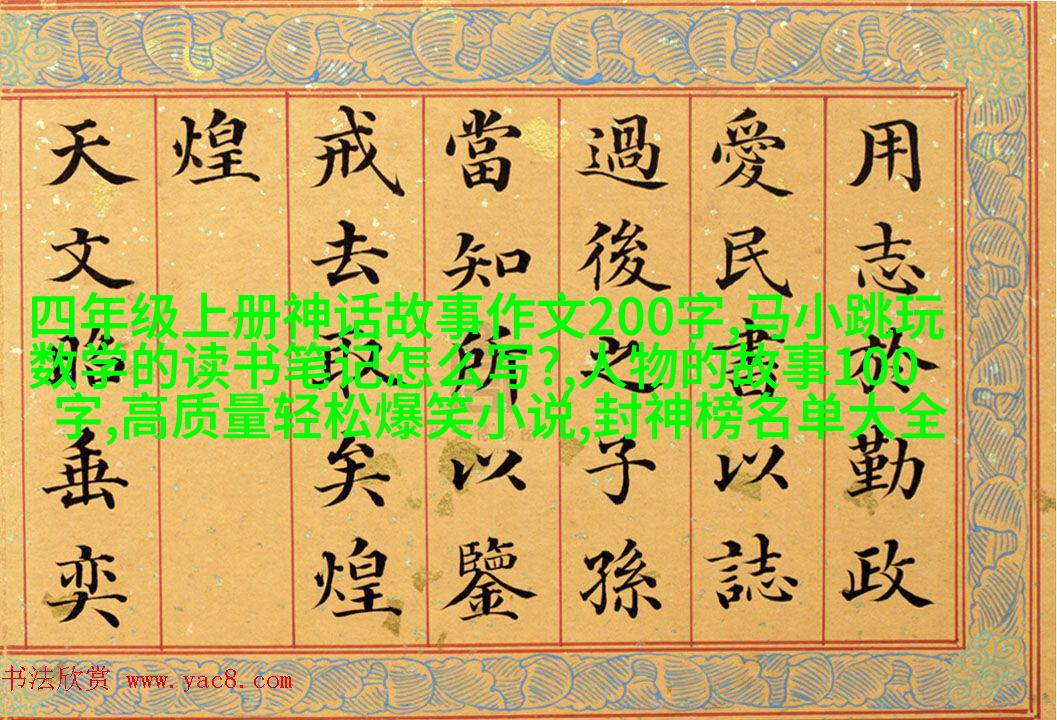 用志於勤政
愛民書以誌
過後之子孫
當知所以鑒
戒去取矣煌
煌
天文昭垂奕
四年级上册神话故事作文200字,马小跳玩
数学的读书笔记怎么写?,人物的故事100
字,高质量轻松爆笑小说,封神榜名单大全
书法欣赏 www.yac8.com